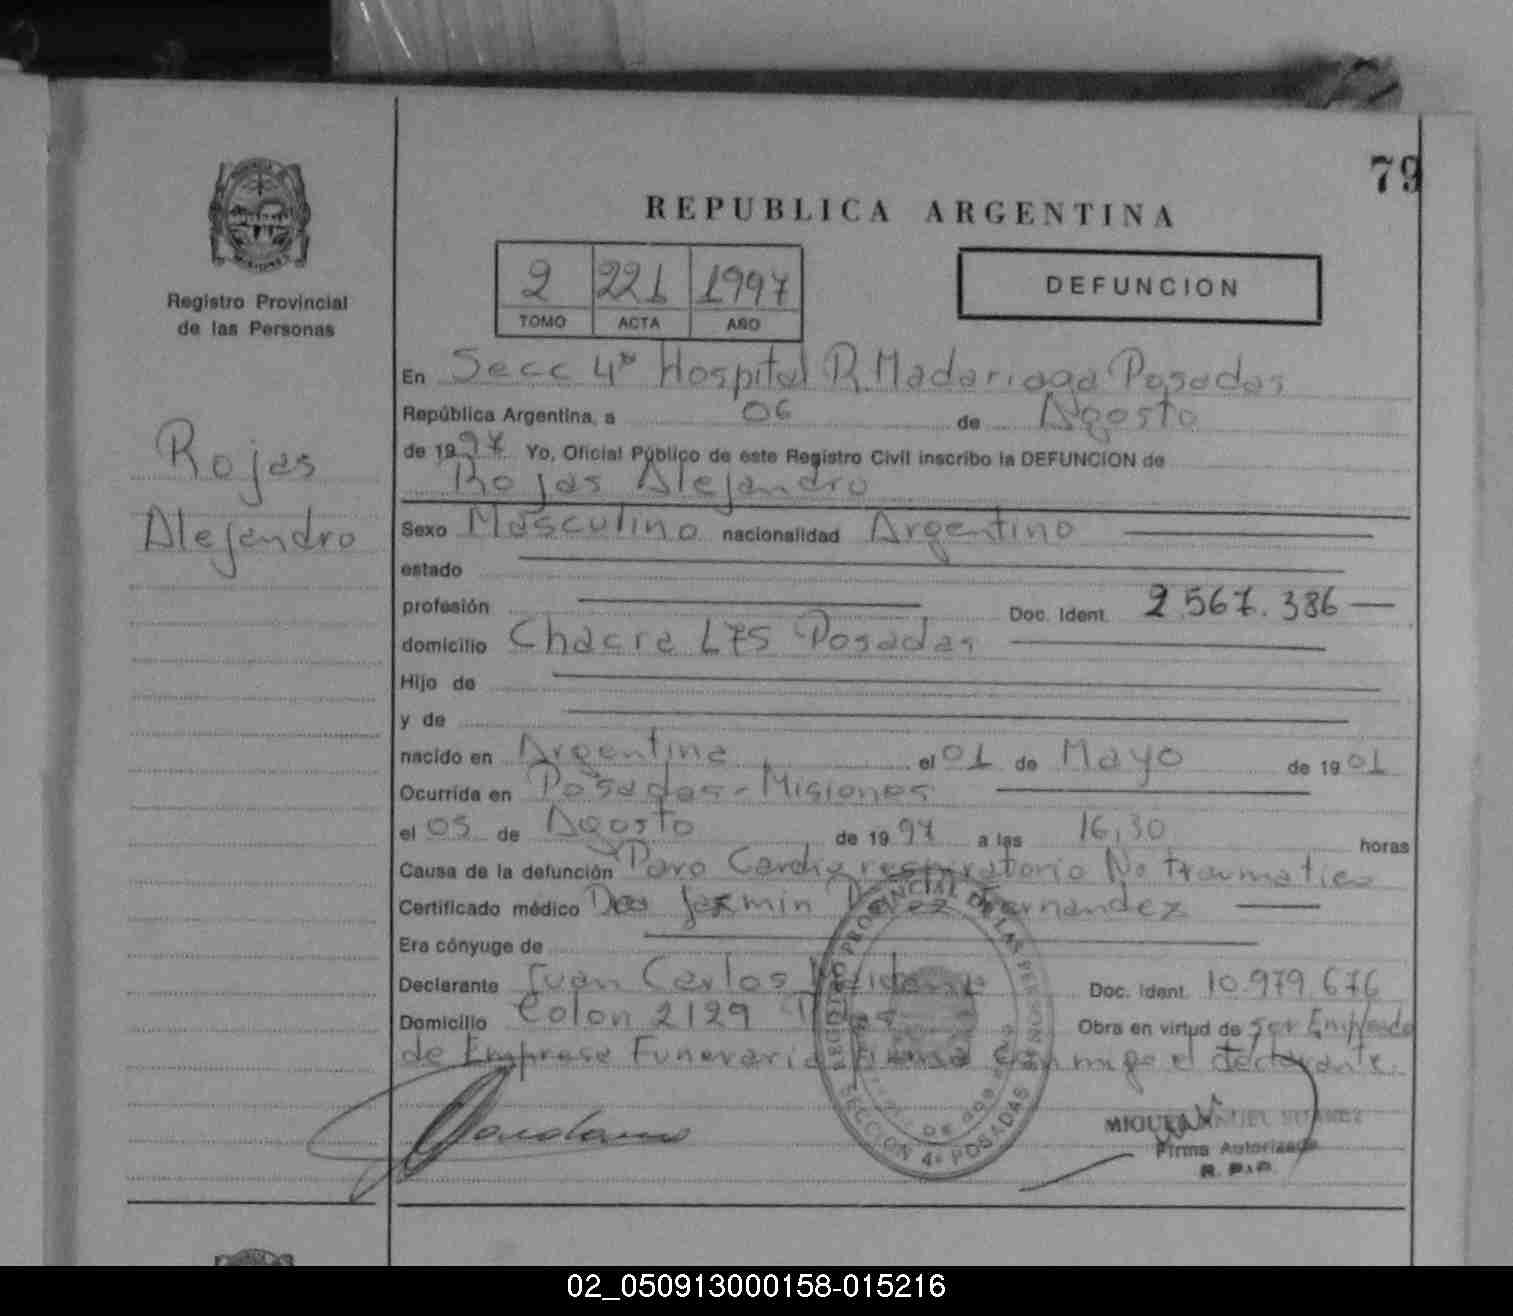 79
REPUBLICA ARGENTINA
MISIONES
Registro Provincial
de las Personas
2 221 1997
TOMO ACTA AÑO
DEFUNCION
Rojas
Alejandro
En Secc 4ª Hospital R. Madariaga Posadas
República Argentina, a 06 de Agosto
de 1997 Yo, Oficial Público de este Registro Civil inscribo la DEFUNCION de
Rojas Alejandro
Sexo Masculino nacionalidad Argentino
estado
profesión Doc. Ident. 2.567.386
domicilio Chacra 175 Posadas
Hijo de
y de
nacido en Argentina el 01 de Mayo de 1901
Ocurrida en Posadas - Misiones
el 05 de Agosto de 1997 a las 16,30 horas
Causa de la defunción Paro Cardiorespiratorio No traumatico
Certificado médico Dra Jazmin Fernandez
Era cónyuge de
Declarante Juan Carlos Doc. Ident. 10.979.676
Domicilio Colon 2129 Obra en virtud de ser Empleado
de Empresa Funeraria firmando conmigo el declarante.
REGISTRO PROVINCIAL DE LAS PERSONAS
SECCION 4ª POSADAS
MIGUEL
Firma Autorizada
R. P. P.
02_050913000158-015216